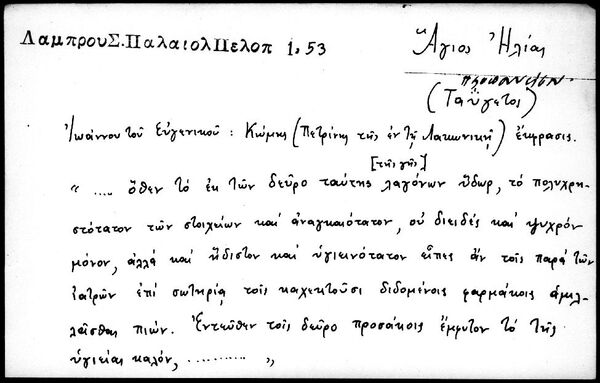 ΛαμπρουΣ.ΠαλαιολΠελοπ 1,53
Ἅγιος Ἠλίας
(Ταΰγετος)
Ἰωάννου τοῦ Εὐγενικοῦ : Κώμης (Πετρίνης τῆς ἐν τῇ Λακωνικῇ) ἔκφρασις.
[τῆς γῆς]
" .... ὅθεν τὸ ἐκ τῶν δεῦρο ταύτης λαγόνων ὕδωρ, τὸ πολυχρη-
στότατον τῶν στοιχείων καὶ ἀναγκαιότατον, οὐ διειδές καὶ ψυχρόν
μόνον, ἀλλά καὶ ἥδιστον καὶ ὑγιεινότατον εἶπες ἄν τοῖς παρά τῶν
ἰατρῶν ἐπί σωτηρίᾳ τοῖς καχεκτοῦσι διδομένοις φαρμάκοις ἁμιλ-
λᾶσθαι πιών. Ἐντεῦθεν τοῖς δεῦρο προσοίκοις ἔμφυτον τό τῆς
ὑγιείας καλόν, .......... "